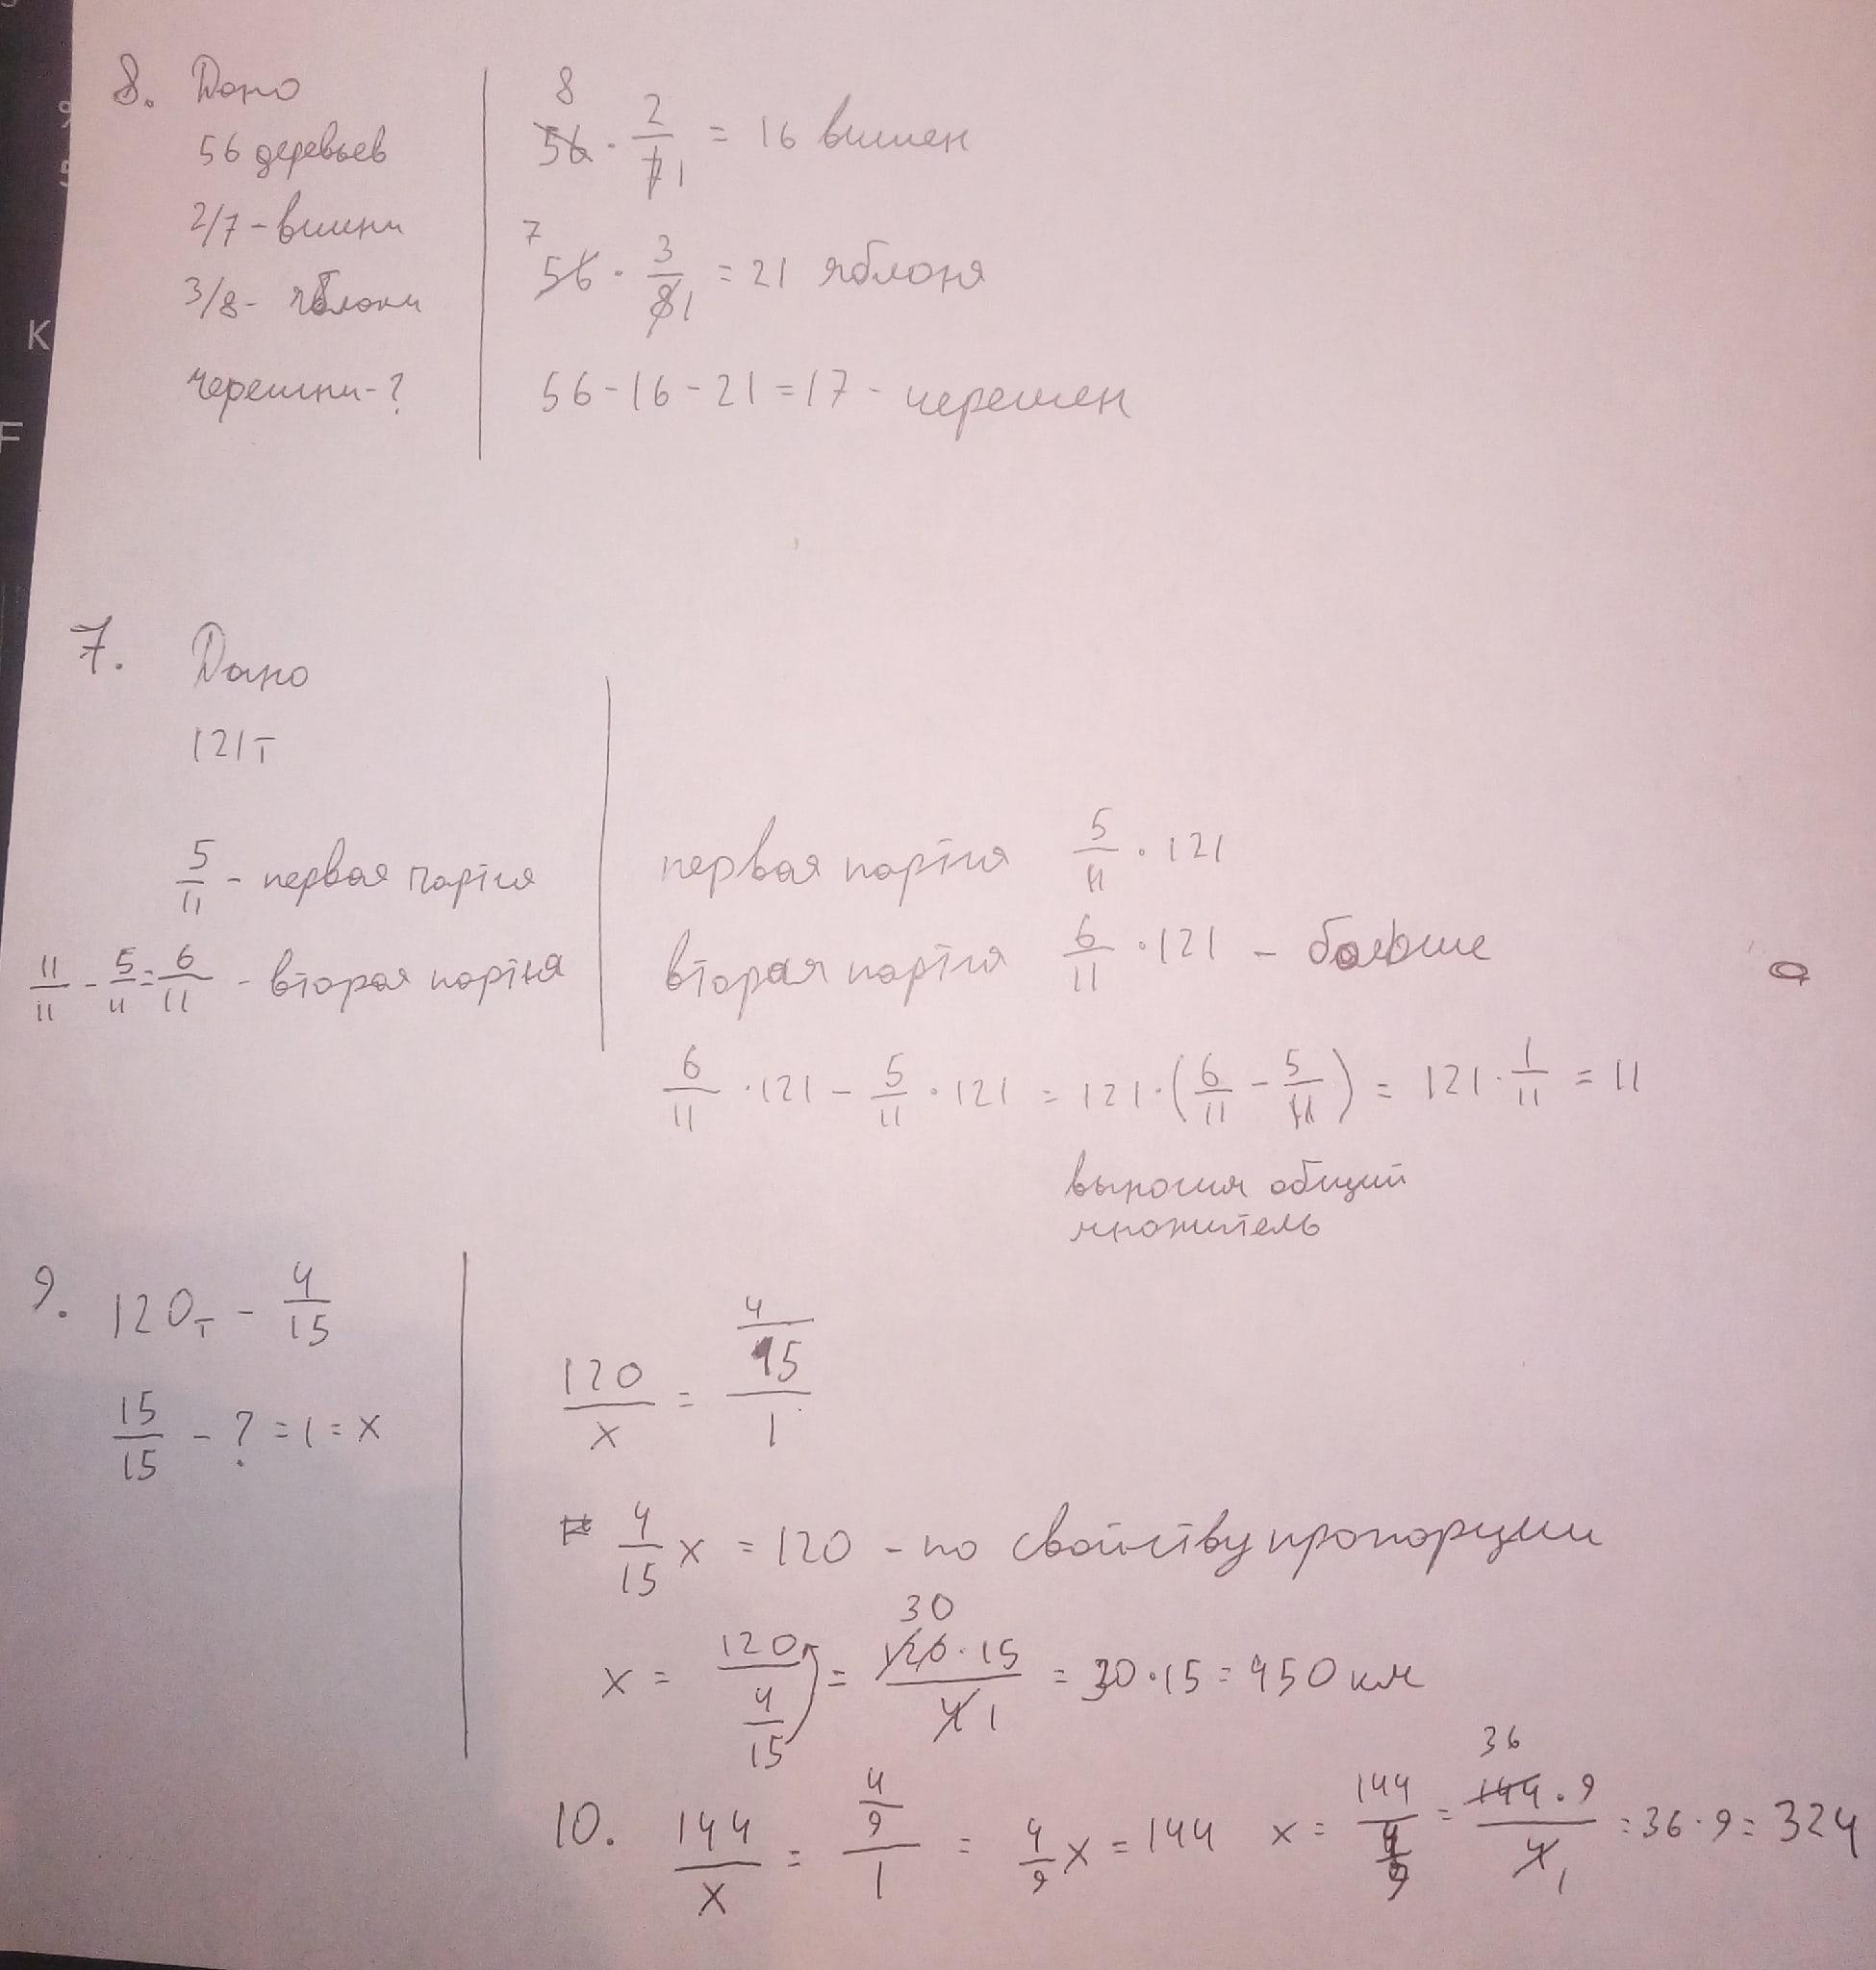 8. Дано
56 деревьев
2/7 - вишни
3/8 - яблони
черешни - ?
8
56 · 2/7 1 = 16 вишен
7
56 · 3/8 1 = 21 яблоня
56 - 16 - 21 = 17 - черешен
7. Дано
121 т
5/11 - первая партия
11/11 - 5/11 = 6/11 - вторая партия
первая партия 5/11 · 121
вторая партия 6/11 · 121 - больше
6/11 · 121 - 5/11 · 121 = 121 · (6/11 - 5/11) = 121 · 1/11 = 11
выносим общий
множитель
9. 120 т - 4/15
15/15 - ? = 1 = x
120/x = (4/15)/1
4/15 x = 120 - по свойству пропорции
30
x = 120/(4/15) = 120 · 15/4 1 = 30 · 15 = 450 км
36
10. 144/x = (4/9)/1 = 4/9 x = 144 x = 144/(4/9) = 144 · 9/4 1 = 36 · 9 = 324
K
F
9
5